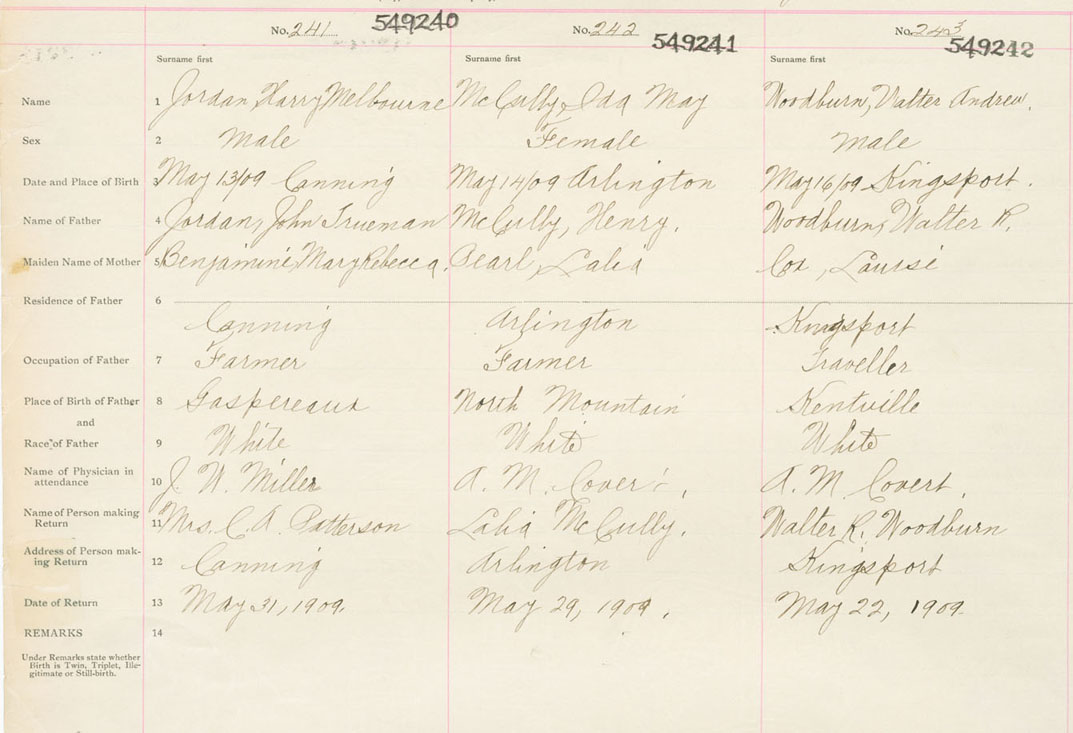 No. 241 549240 No. 242 549241 No. 243 549242
Surname first Surname first Surname first
Name 1 Jordan, Harry Melbourne McCully, Ida May Woodburn, Walter Andrew.
Sex 2 Male Female Male
Date and Place of Birth 3 May 13/09 Canning May 14/09 Arlington May 16/09 Kingsport.
Name of Father 4 Jordan, John Trueman McCully, Henry. Woodburn, Walter R.
Maiden Name of Mother 5 Benjamine, Mary Rebecca. Pearl, Lalia Cox, Louise
Residence of Father 6
Canning Arlington Kingsport
Occupation of Father 7 Farmer Farmer Traveller
Place of Birth of Father 8 Gaspereaux North Mountain Kentville
and
Race of Father 9 White White White
Name of Physician in
attendance 10 J. W. Miller A. M. Covert, A. M Covert.
Name of Person making
Return 11 Mrs. C. A. Patterson Lalia McCully. Walter R. Woodburn
Address of Person mak-
ing Return 12 Canning Arlington Kingsport
Date of Return 13 May 31, 1909. May 29, 1909. May 22, 1909
REMARKS 14
Under Remarks state whether
Birth is Twin, Triplet, Ille-
gitimate or Still-birth.